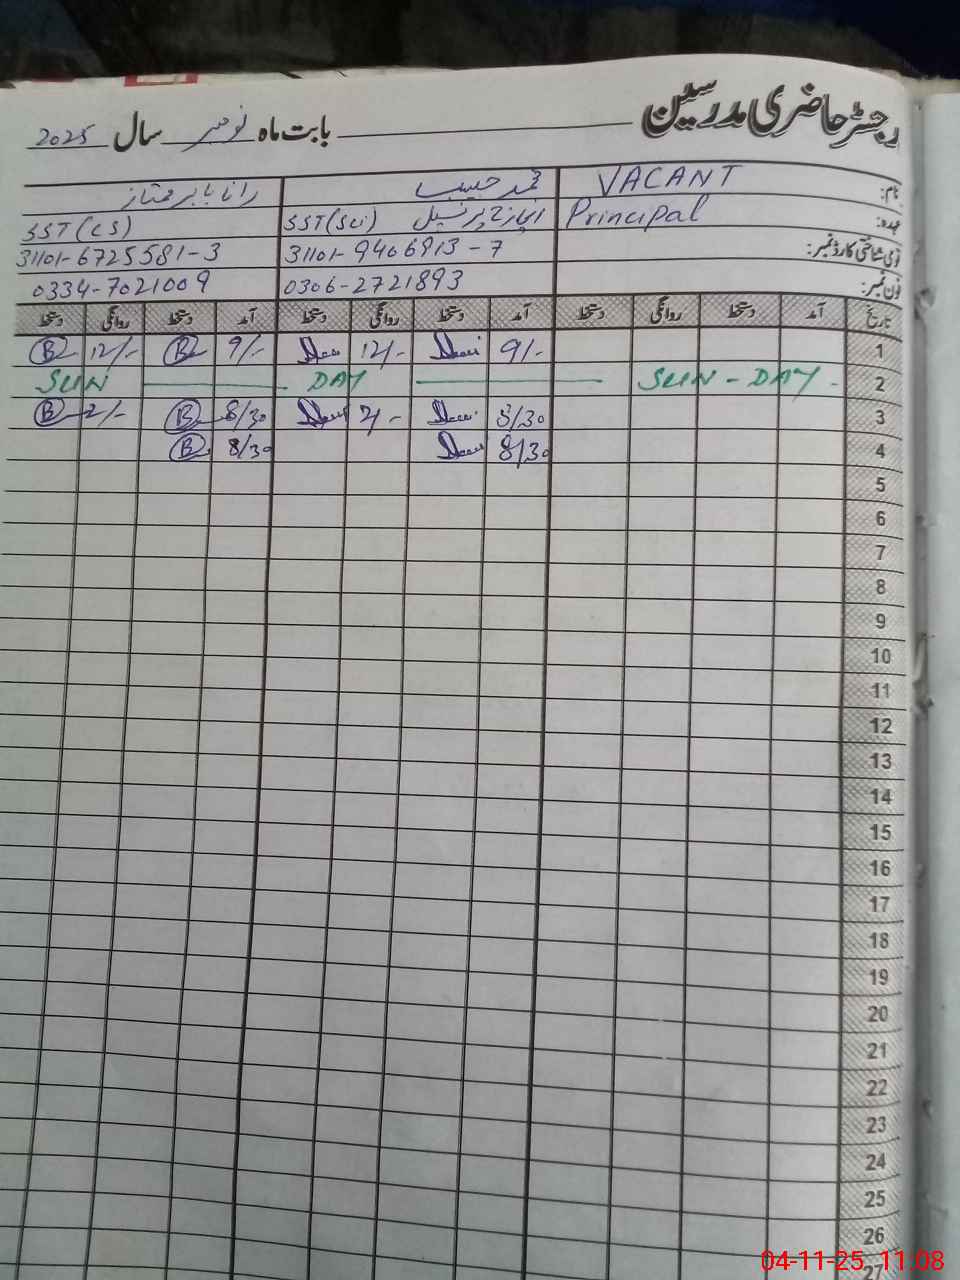 رجسٹر حاضری مدرسین بابت ماہ نومبر سال 2025
نام: VACANT محمد حبیب رانا بابر ممتاز
عہدہ: Principal انچارج پرنسپل SST(Sci) SST(CS)
قومی شناختی کارڈ نمبر: 31101-9406913-7 31101-6725581-3
فون نمبر: 0306-2721893 0334-7021009
تاریخ آمد دستخط روانگی دستخط آمد دستخط روانگی دستخط آمد دستخط روانگی دستخط
1 9/- 12/- 9/- B 12/- B
2 SUN - DAY - SUN DAY
3 8/30 2/- 8/30 B 2/- B
4 8/30 8/30 B
5
6
7
8
9
10
11
12
13
14
15
16
17
18
19
20
21
22
23
24
25
26
27
04-11-25 11:08